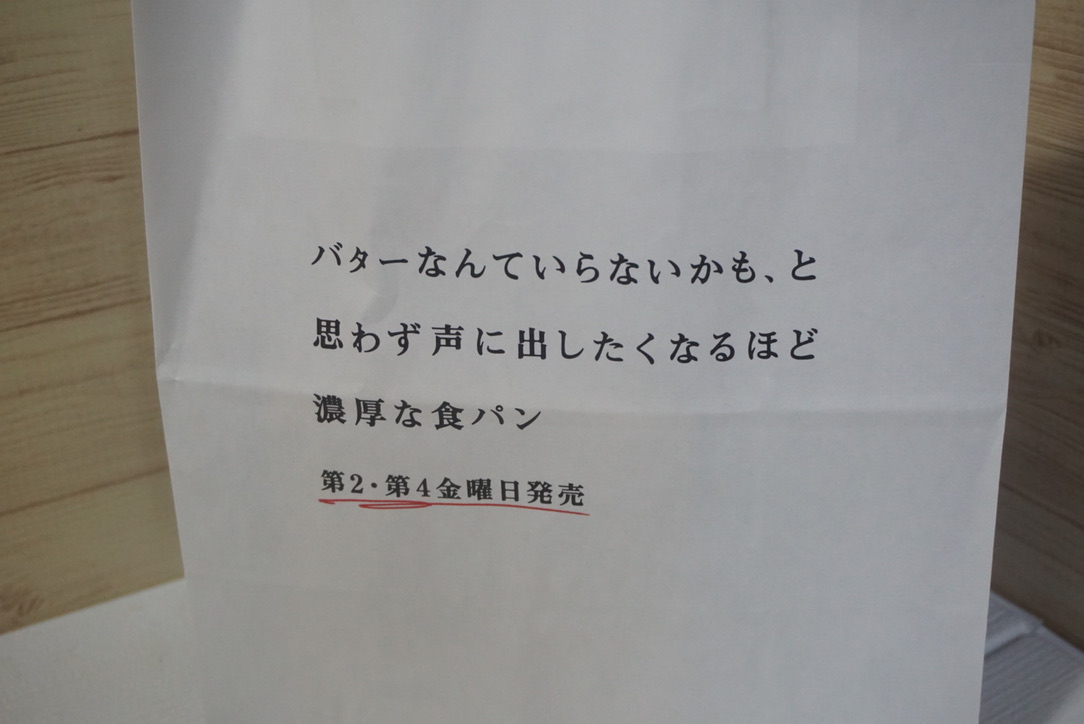 バターなんていらないかも、と
思わず声に出したくなるほど
濃厚な食パン
第2・第4金曜日発売